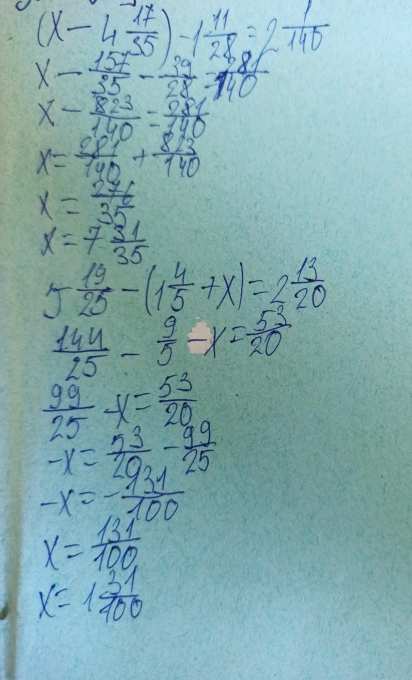 (x - 4 17/35) - 1 11/28 = 2 1/140
x - 157/35 - 39/28 = 281/140
x - 823/140 = 281/140
x = 281/140 + 823/140
x = 276/35
x = 7 31/35
5 19/25 - (1 4/5 + x) = 2 13/20
144/25 - 9/5 - x = 53/20
99/25 - x = 53/20
-x = 53/20 - 99/25
-x = - 131/100
x = 131/100
x = 1 31/100